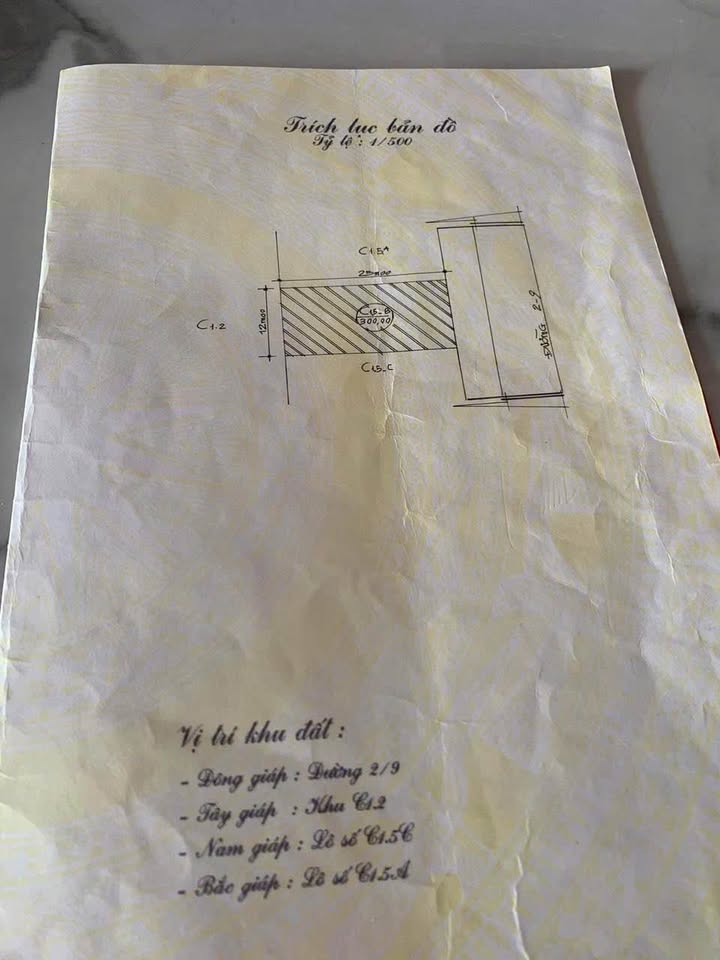 Trích lục bản đồ
Tỷ lệ : 1/500
C1.5A
25m00
C1.2
12m00
C1.5_B
300,00
ĐƯỜNG 2-9
C1.5_C
Vị trí khu đất :
- Đông giáp : Đường 2/9
- Tây giáp : Khu C1.2
- Nam giáp : Lô số C1.5C
- Bắc giáp : Lô số C1.5A